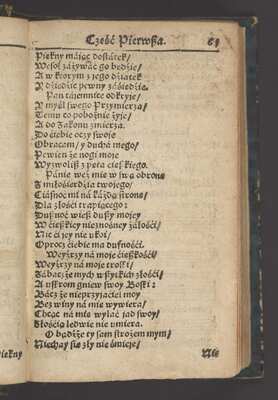 Część Pierwsza. 61
Piękny máiąc dostátek/
Wesoł záżywáć go będzie/
A w którym z iego dziatek
W dziedzic pewny záśiędzie.
Pan táiemnice odkryie/
W myśl swego Przymierza/
Temu co pobożnie żyie/
A do Zakonu zmierza.
Do ćiebie oczy swoie
Obracam/ y duchá mego/
Pewien że nogi moie
Wyzwolisz z pętá ćięszkiego.
Pánie weź mię w swą obronę
Z miłośierdzia twoiego/
Ciáśno mi ná káżdą stronę/
Dla złośći trapiącego:
Dusznoć więc duszy moiey
W ćięszkiey nieznośney żałośći/
Nic ćie iey nie vkoi/
Oprocz ćiebie ma dufnośći.
Weyźrzy ná moie ćięszkośći/
Weyźrzy ná moie troski/
Zábacż że mych wszytkich złośći/
A vskrom gniew swoy Boski:
Bácz że nieprzyiaćiel moy
Bez winy ná mię wywiera/
Chcąc ná mię wylać iad swoy/
Złośćią ledwie nie vmiera.
O bądźże ty sam strożem mym/
Niechay się zły nie śmieie/
Nie
Piękny